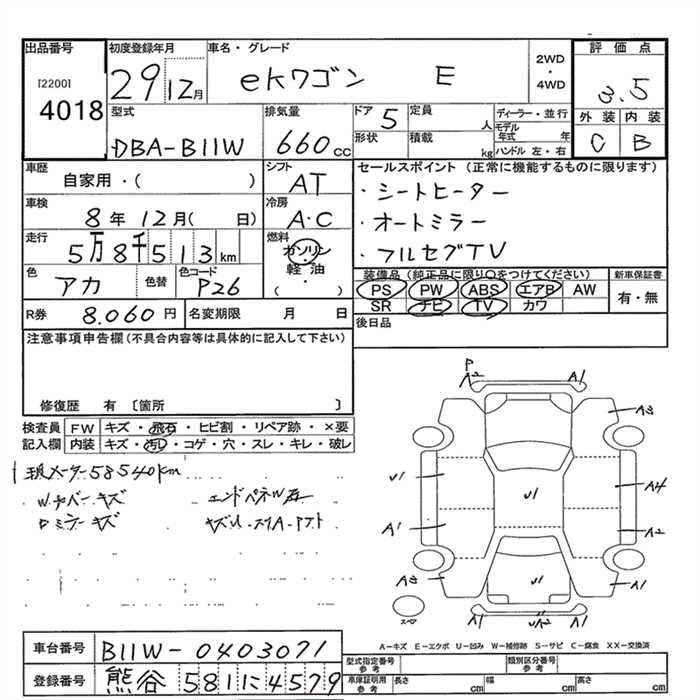 出品番号
[2200]
4018
初度登録年月
29 12月
車名・グレード
eKワゴン E
2WD
・
4WD
評価点
3.5
外装 内装
C B
型式
DBA-B11W
排気量
660cc
ドア 5
定員 人
形状
積載 kg
ディーラー・並行
モデル年式 年
ハンドル 左・右
車歴
自家用・( )
シフト
AT
セールスポイント (正常に機能するものに限ります)
・シートヒーター
・オートミラー
・フルセグTV
車検
8年 12月( 日)
冷房
A・C
走行
5万8千513km
燃料
ガソリン
軽油
( ・ )
色
アカ
色替
色コード
P26
装備品 (純正品に限り○をつけてください)
PS PW ABS エアB AW
SR ナビ TV カワ
新車保証書
有・無
R券 8.060円
名変期限 月 日
後日品
注意事項申告欄 (不具合内容等は具体的に記入して下さい)
修復歴 有 〔箇所 〕
検査員記入欄
FW キズ・飛石・ヒビ割・リペア跡・×要
内装 キズ・汚レ・コゲ・穴・スレ・キレ・破レ
現メーター58540km
キズ
ミラーキズ
エンドパネル
P
A2 A1
A3
U1
U1
A4
A1
A2
A3
U1
A1
スペア
A1
UA2
A1
A-キズ E-エクボ U-凹み W-補修跡 S-サビ C-腐食 XX-交換済
車台番号
B11W-0403071
登録番号
熊谷 581に4579
型式指定番号
参考
類別区分番号
参考
車庫証明用
参考
長さ cm
幅 cm
高さ cm